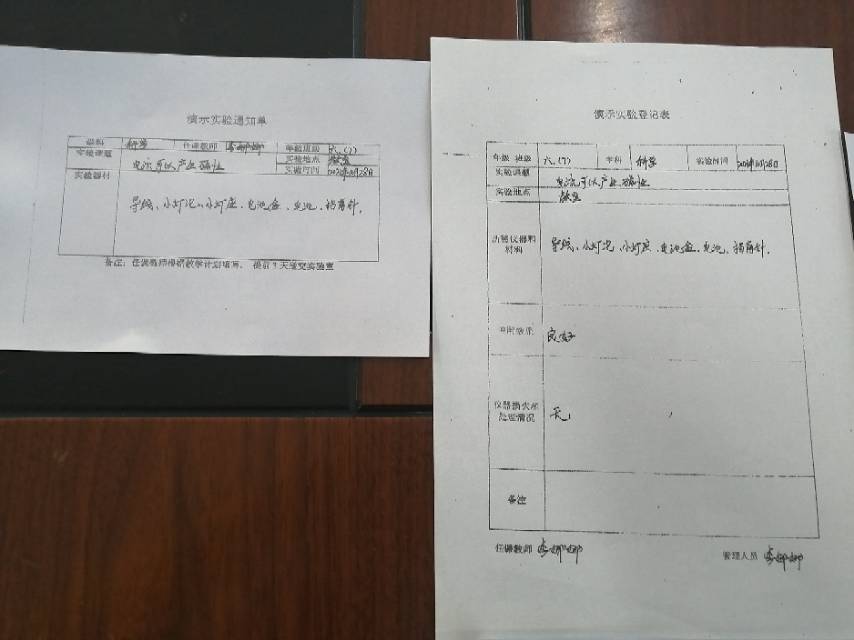 演示实验通知单
学科 科学 任课教师 李娜娜 年级班级 六、(7)
实验课题 电流可以产生磁性 实验地点 教室
实验时间
实验器材 导线、小灯泡、小灯座、电池盒、电池、指南针。
备注：任课教师根据教学计划填写，提前3天送交实验室
演示实验登记表
年级 班级 六、(7) 学科 科学 实验时间
实验课题 电流可以产生磁性
实验地点 教室
所需仪器和材料 导线、小灯泡、小灯座、电池盒、电池、指南针。
使用效果 良好
仪器损失和处理情况 无
备注
任课教师 李娜娜 管理人员 李娜娜